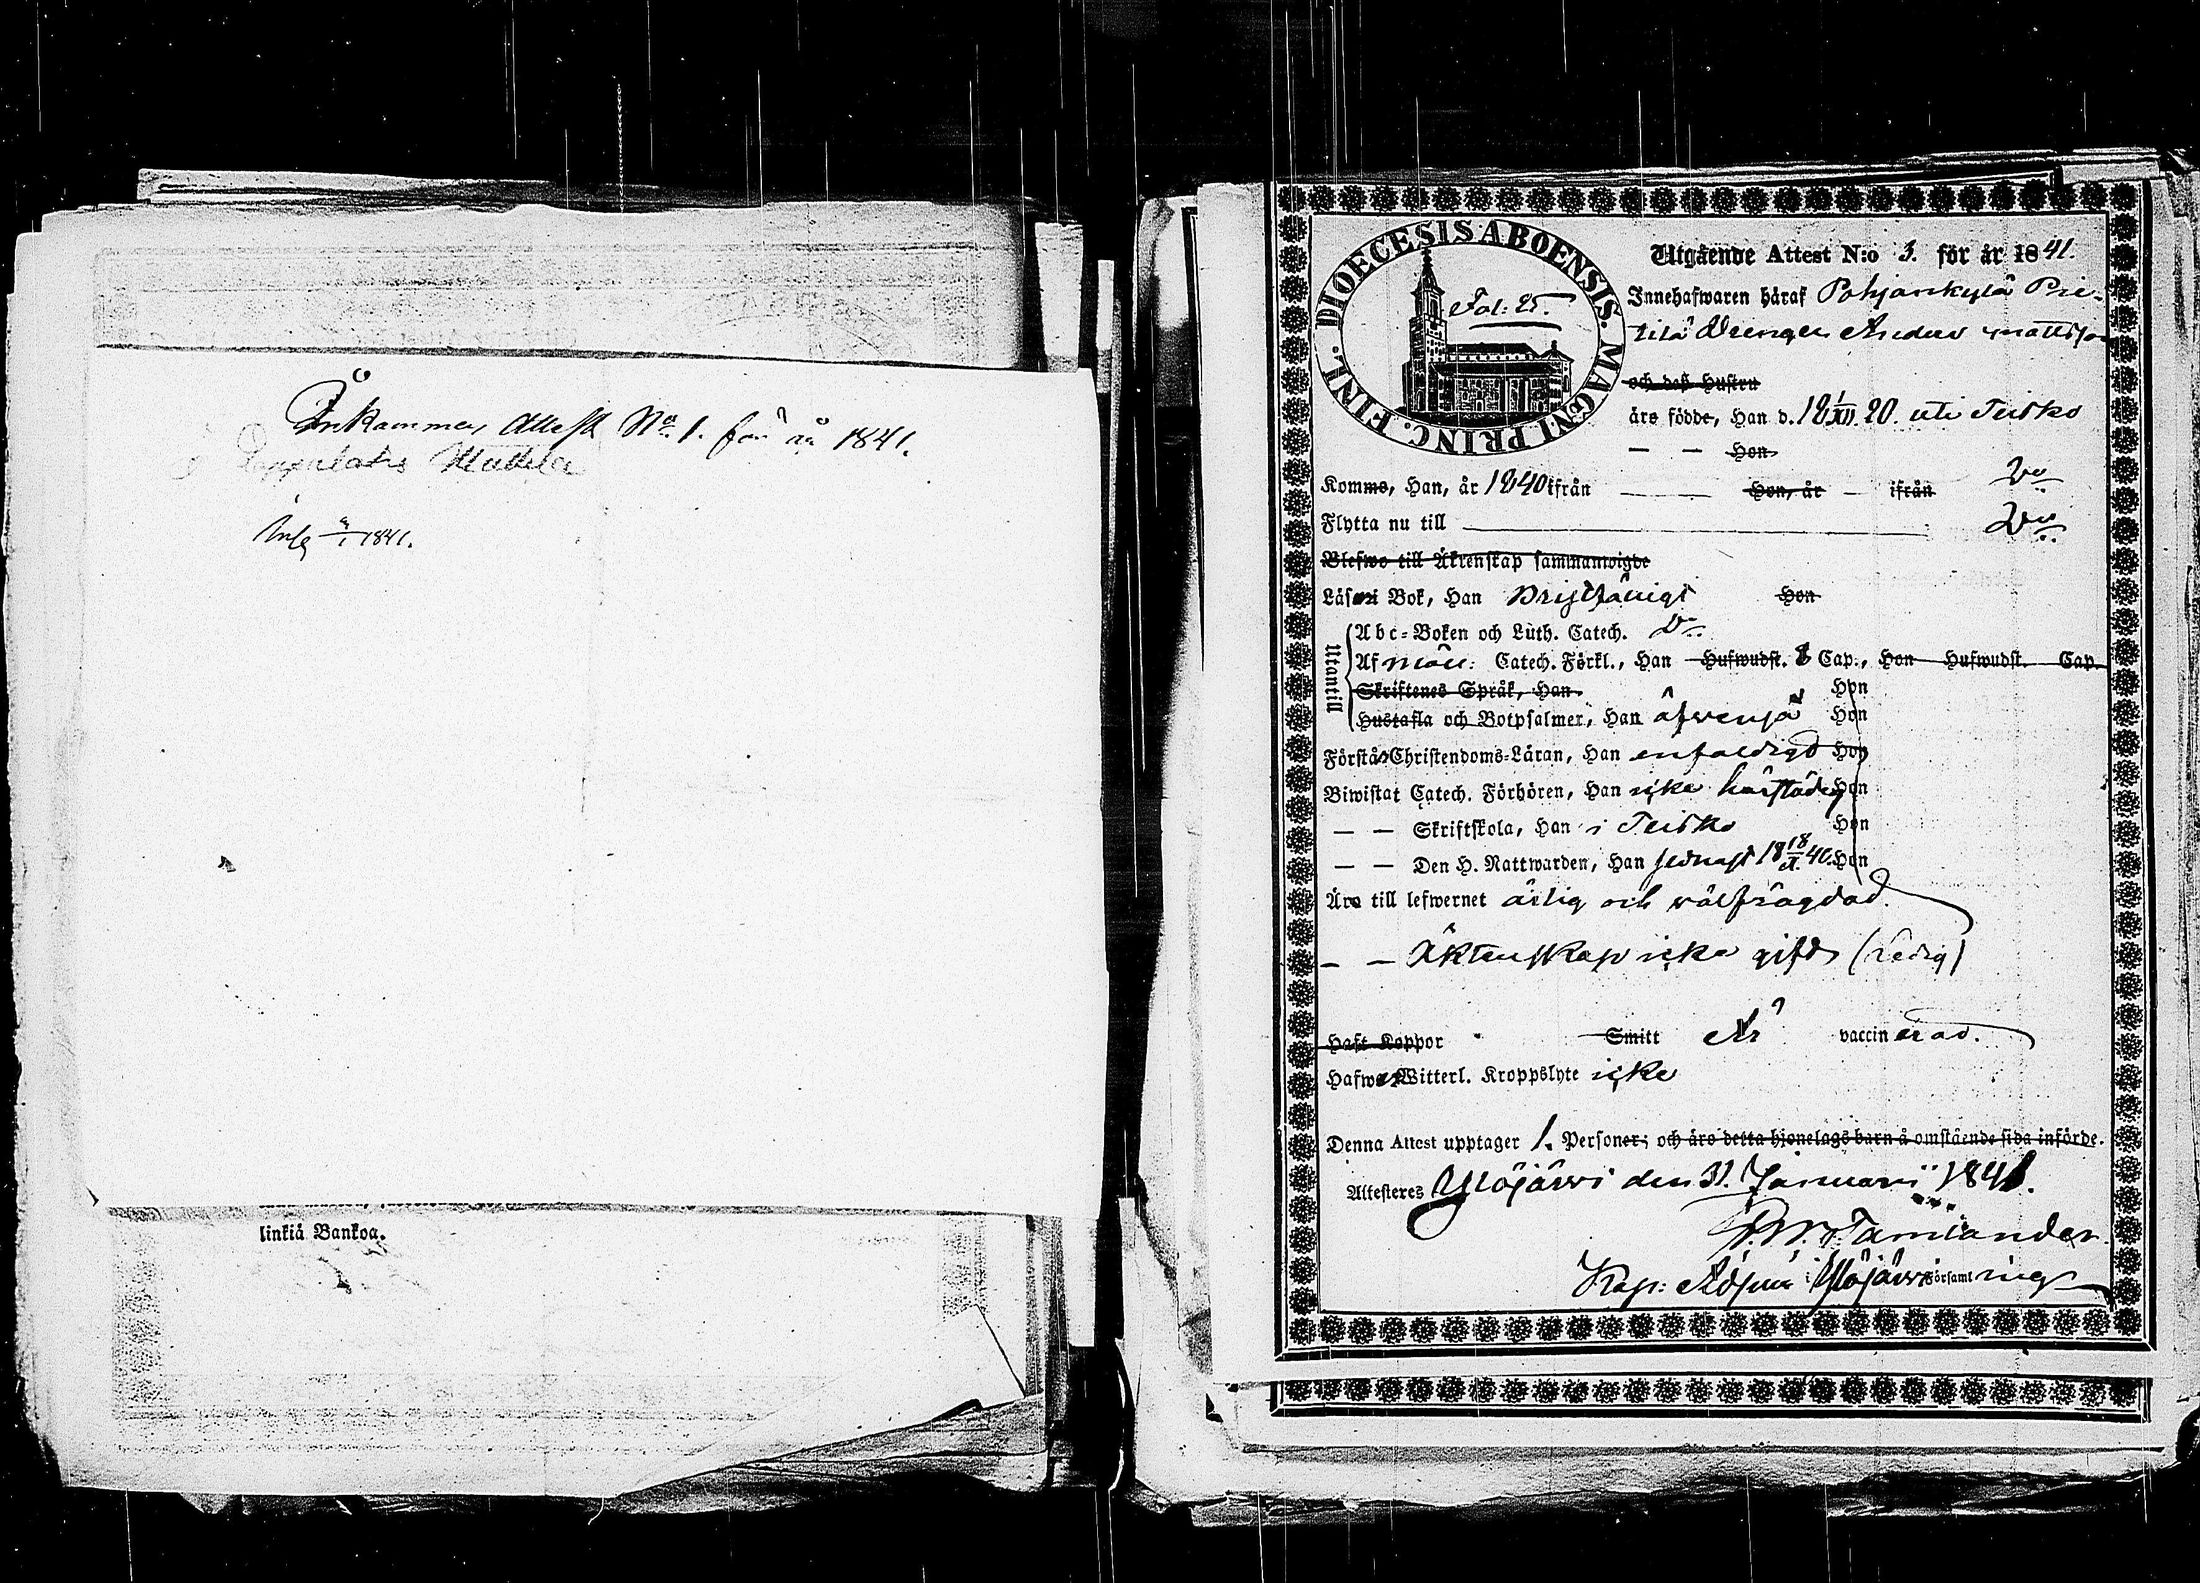 Inkommen Attest No 1. för år 1841.
1841.
linkiä Bankoa.
DIOECESIS ABOENSIS. MAGNI PRINC. FINL.
Fol: 25.
Utgående Attest N:o 3. för år 1841.
Innehafwaren häraf Pohjankylä Pie-
tilä Drengen Anders Mattsson
och deß Hustru
äro födde, Han d. 18 1/XII 20. uti Teisko
— — Hon
Komme, Han, år 1840 ifrån — Hon, år — ifrån Do
Flytta nu till Do
Blefwo till Äktenskap sammanwigde
Läsa i Bok, Han Hon
Utantill
Abc-Boken och Luth. Catech. Do
Af Möll: Catech. Förkl., Han Hufwudst. 8 Cap., Hon Hufwudst. Cap.
Skriftenes Språk, Han Hon
Hustafla och Botpsalmer, Han äfwenså Hon
Förstå Christendoms-Läran, Han enfaldigt Hon
Biwistat Catech. Förhören, Han icke härstädes Hon
— — Skriftskola, Han i Teisko Hon
— — Den H. Nattwarden, Han sednast 18 18/X 40. Hon
Äro till lefwernet ärlig och wälfrägdad.
— — Äktenskap icke gift (Ledig)
Haft Koppor Smitt Är vaccinerad.
Hafwer Witterl. Kroppslyte icke
Denna Attest upptager 1. Personer; och äro detta hjonelags barn å omstående sida införde.
Attesteres Ylöjärwi den 31. Januarii 1841.
Tamlander.
Kap: Adjunct i Ylöjärwi Församling